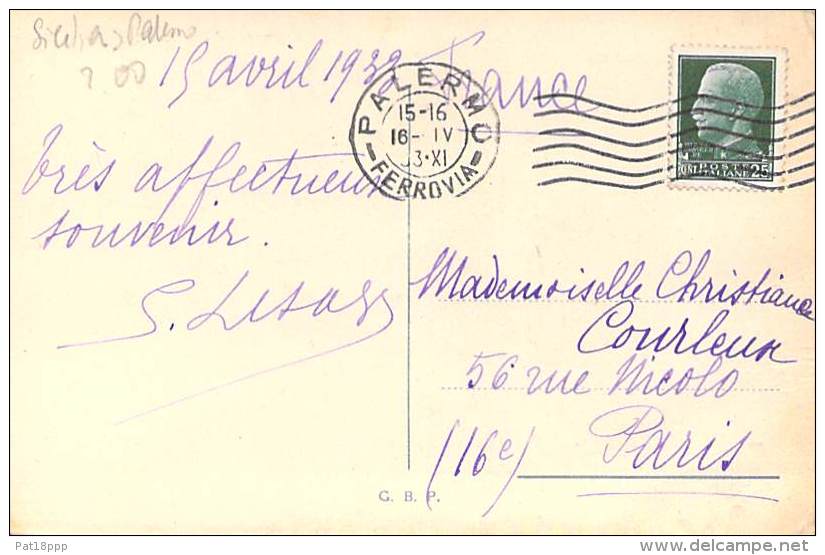 Palermo
15 avril 193
France
PALERMO
15-16
16- IV
33·XI
FERROVIA
POSTE
ITALIANE 25
Très affectueux
souvenir.
Mademoiselle Christiane
Courleux
56 rue Nicolo
(16e) Paris
G. B. P.
Pat18ppp
© delcampe.net